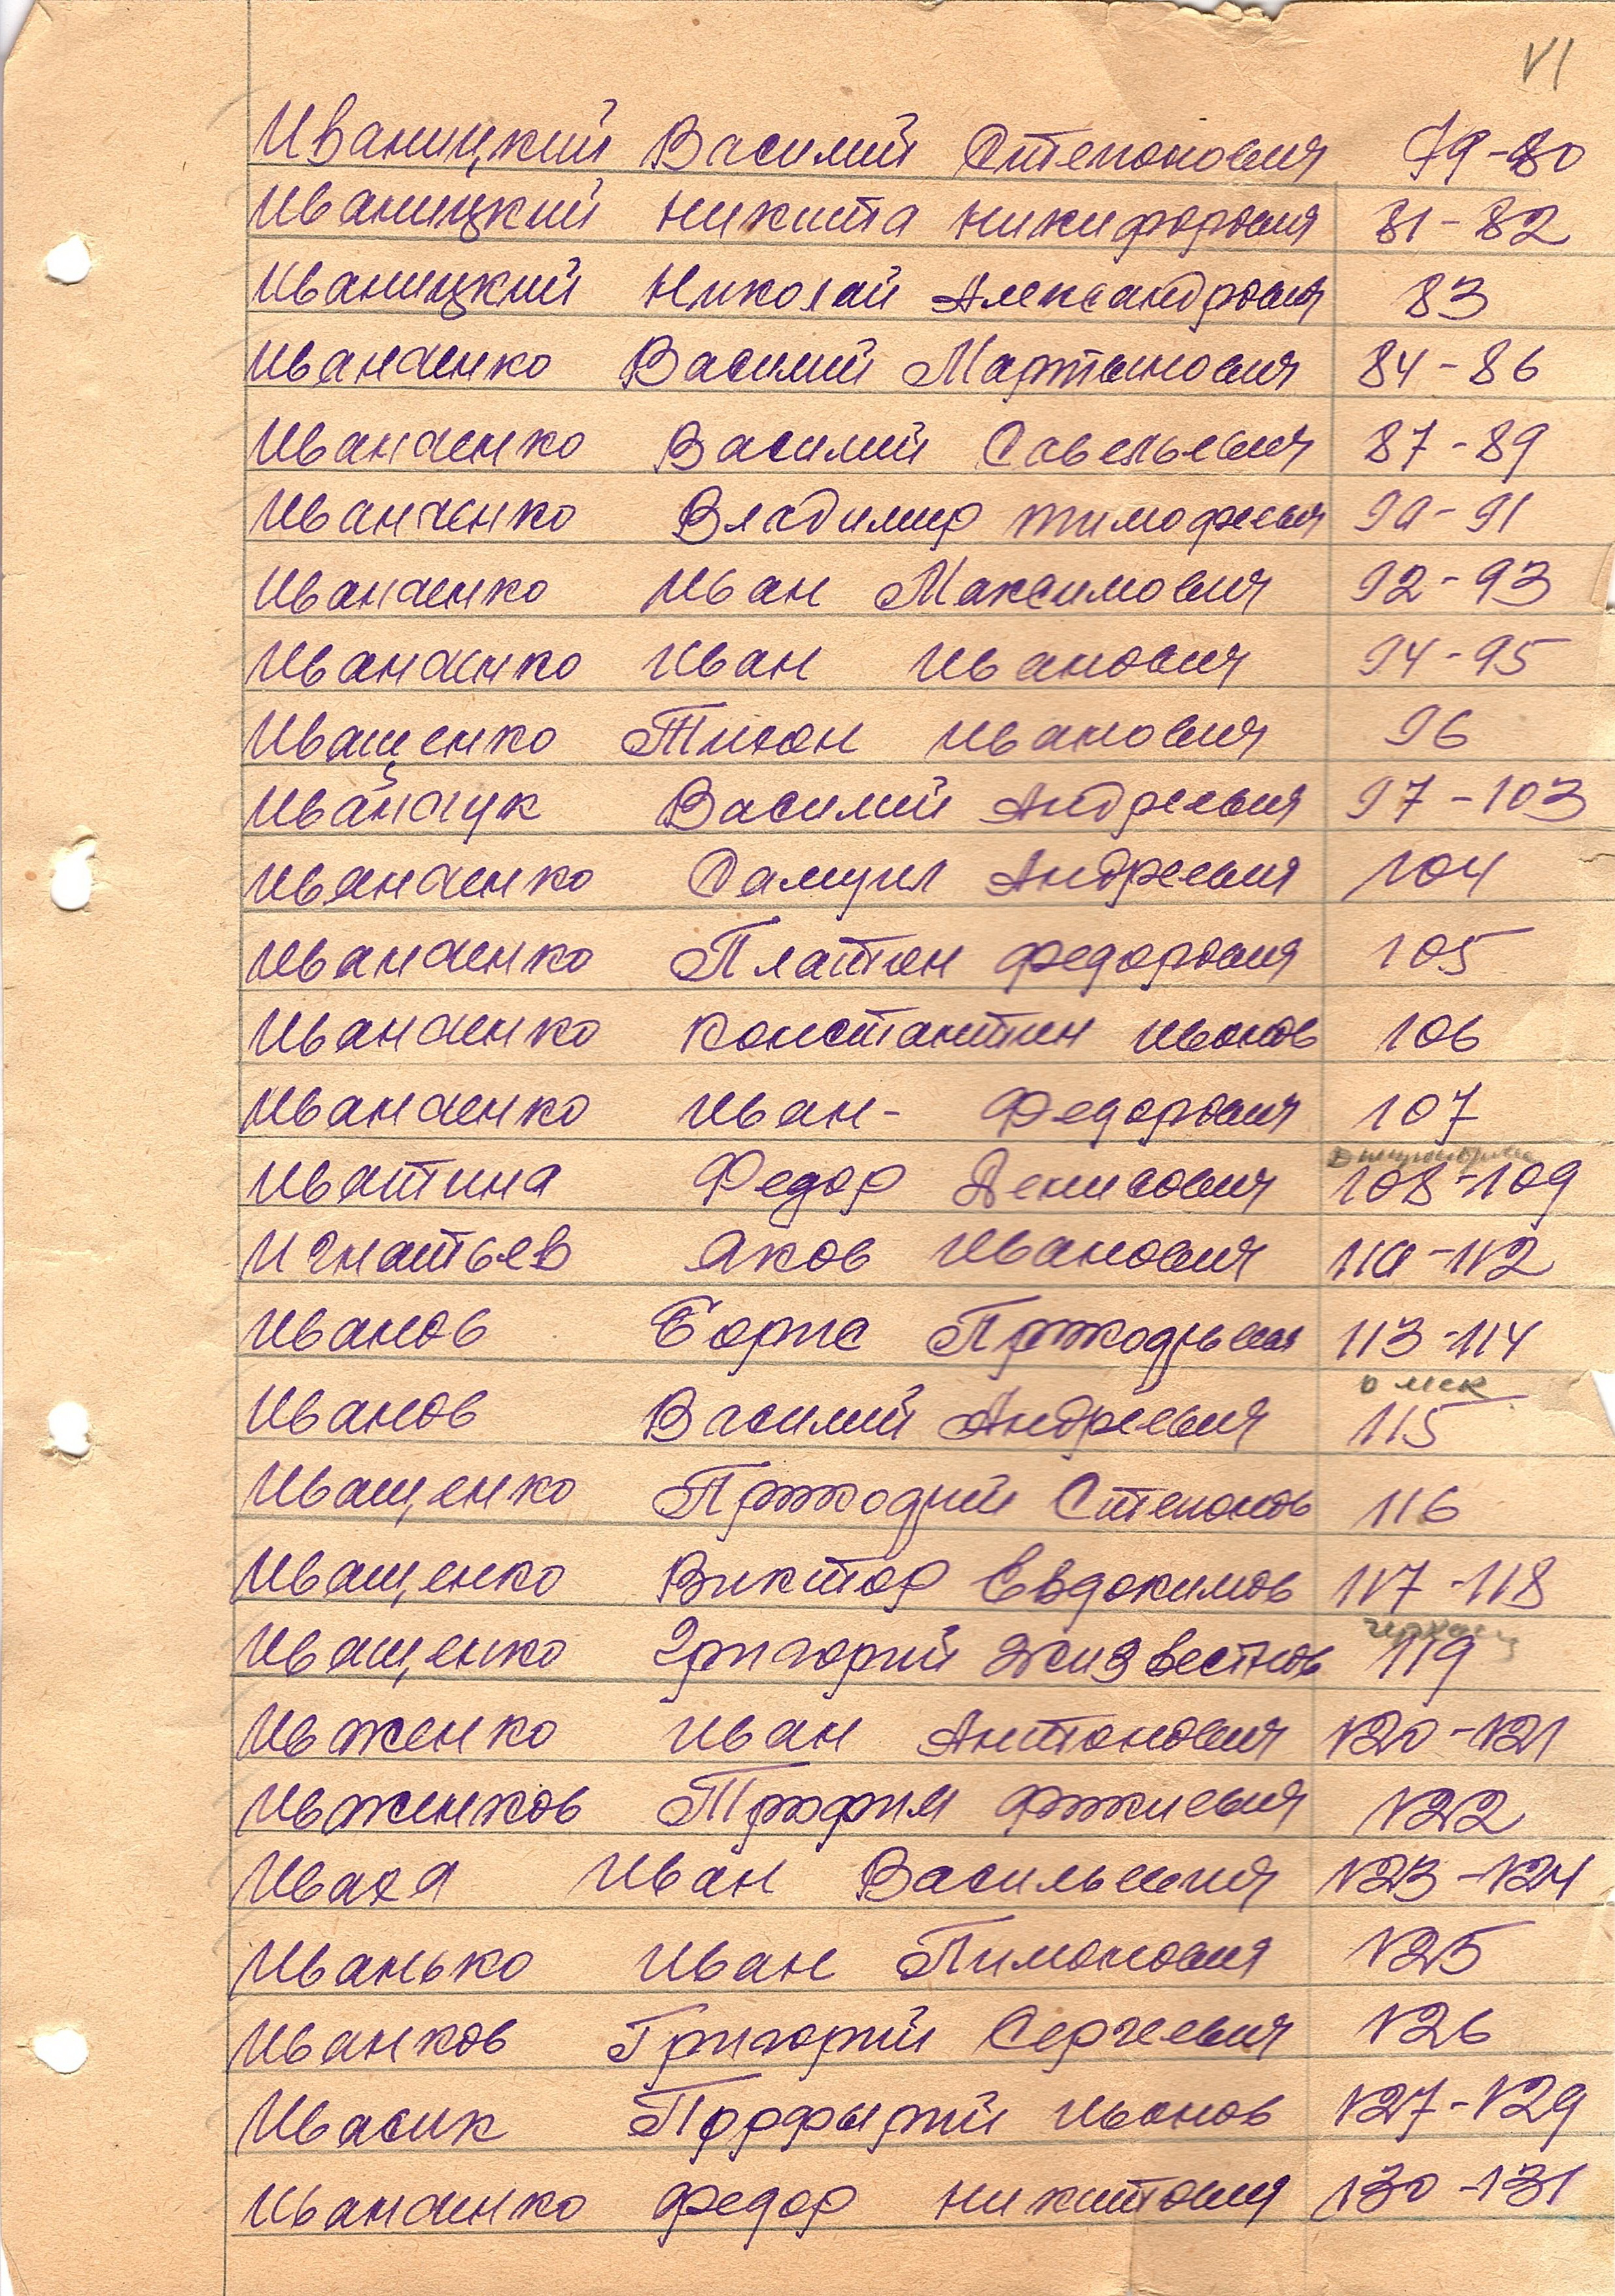 VI
Иваницкий Василий Степонович 79-80
Иваницкий Никита Никифорович 81-82
Иваницкий Николай Александрович 83
Иванченко Василий Мартинович 84-86
Иванченко Василий Савельевич 87-89
Иванченко Владимир Тимофеевич 90-91
Иванченко Иван Максимович 92-93
Иванченко Иван Иванович 94-95
Иващенко Тихон Иванович 96
Иванчук Василий Андреевич 97-103
Иванченко Самуил Андреевич 104
Иванченко Платон Федорович 105
Иванченко Константин Иванов 106
Иванченко Иван- Федорович 107
Иватина Федор Денисович 108-109
Игнатьев Яков Иванович 110-112
Иванов Борис 113-114
Омск
Иванов Василий Андреевич 115
Иващенко Степонов 116
Иващенко Виктор Евдокимов 117-118
Иващенко Григорий 119
Ивженко Иван Антонович 120-121
Ивженков Трофим 122
Иваха Иван Васильевич 123-124
Иванько Иван Пимонович 125
Иванков Григорий Сергеевич 126
Ивасик Порфирий Иванов 127-129
Иванченко Федор Никитович 130-131